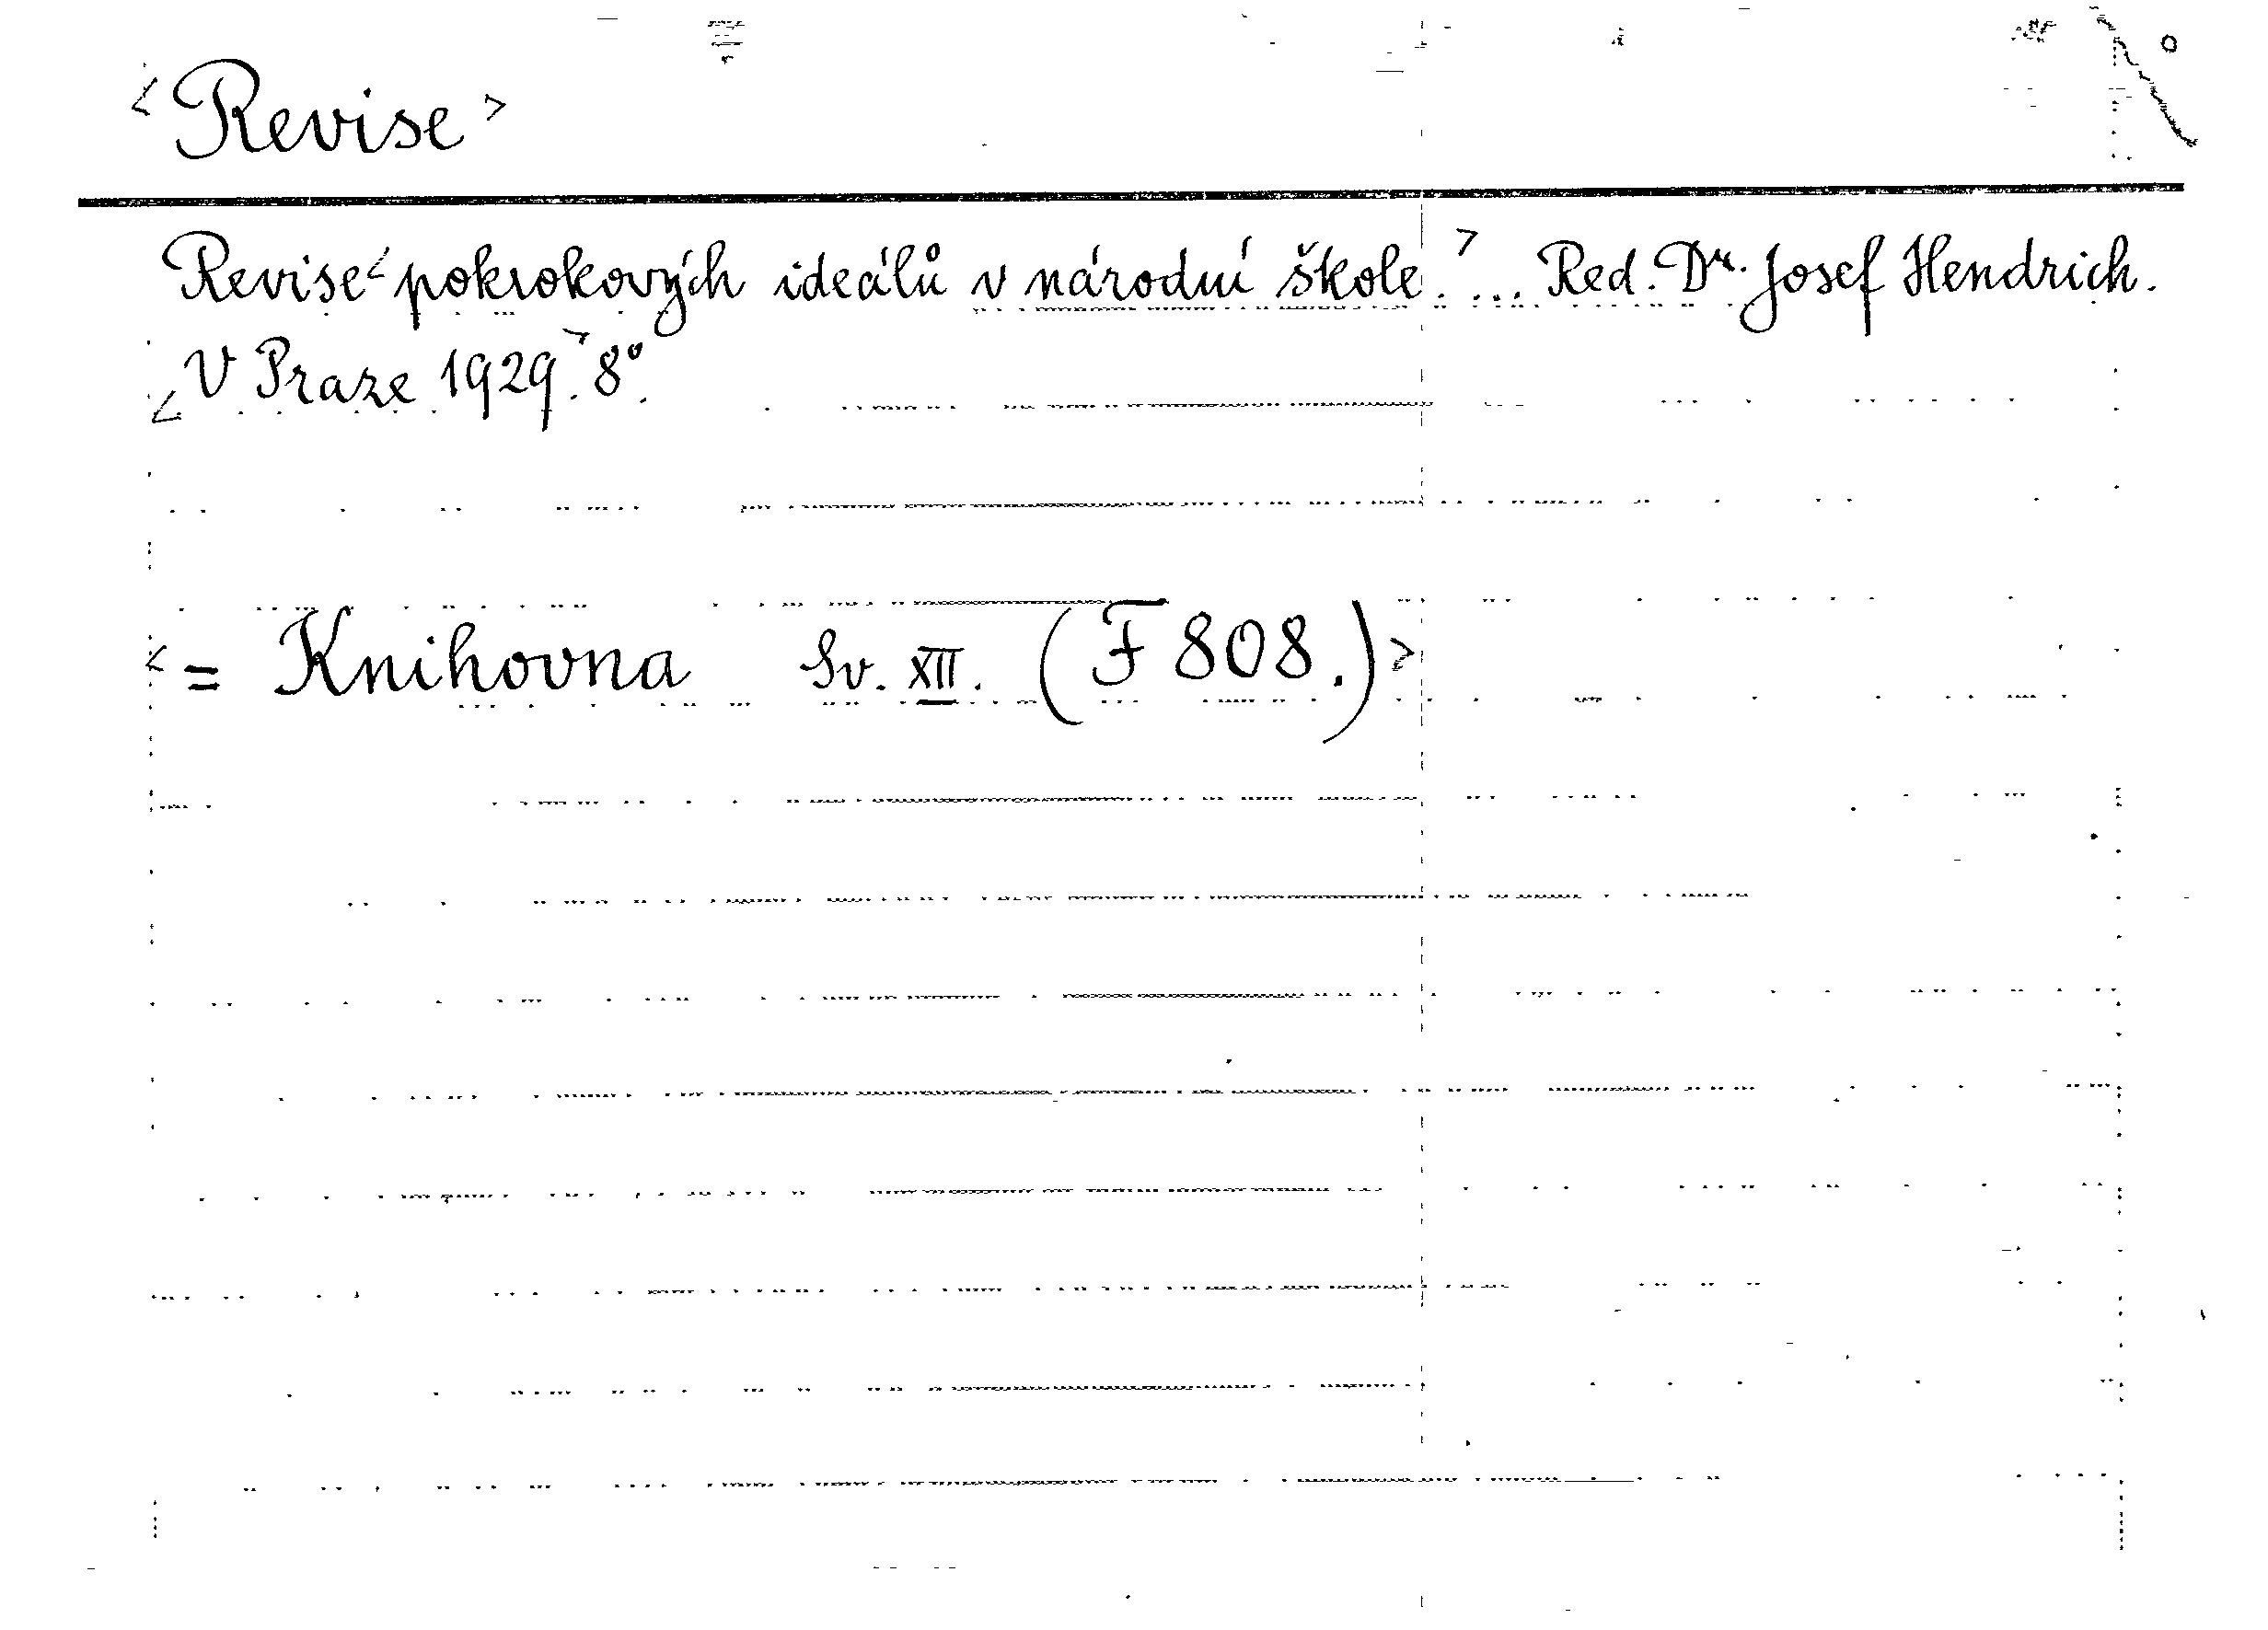 <Revise>
Revise<pokrokových ideálů v národní škole.>... Red. Dr. Josef Hendrich.
<V Praze 1929.>8°.
<= Knihovna Sv. XII. (F 808.)>